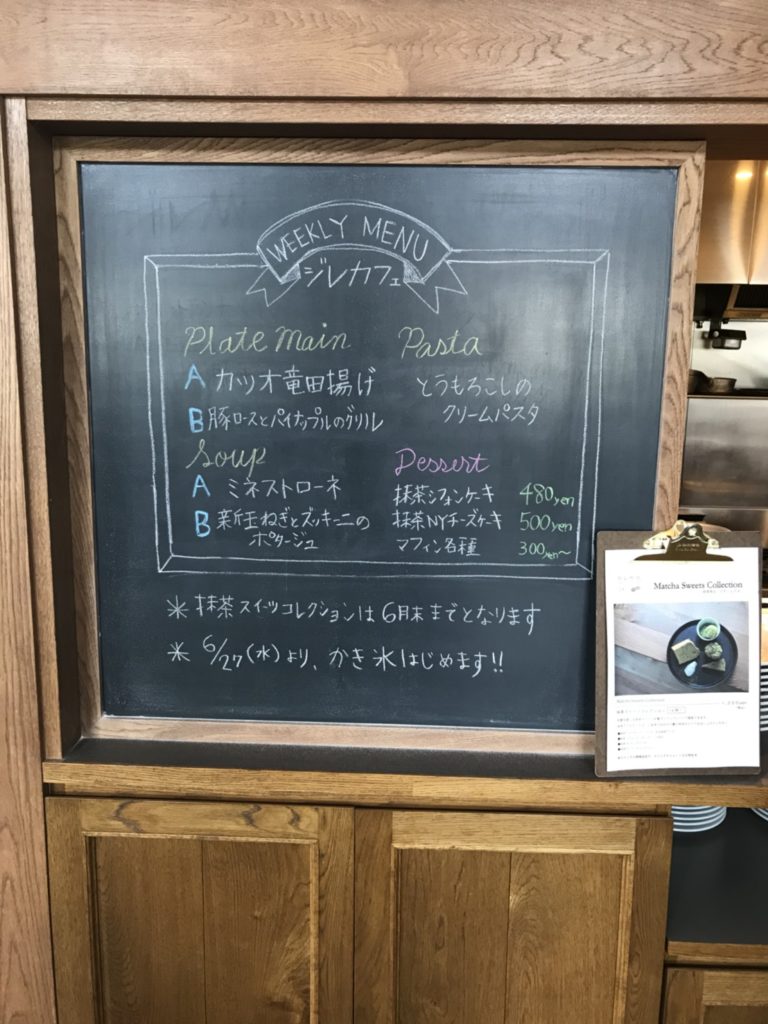 WEEKLY MENU
ジレカフェ
Plate Main
A カツオ竜田揚げ
B 豚ロースとパイナップルのグリル
Soup
A ミネストローネ
B 新玉ねぎとズッキーニの
ポタージュ
Pasta
とうもろこしの
クリームパスタ
Dessert
抹茶シフォンケーキ 480yen
抹茶NYチーズケーキ 500yen
マフィン各種 300yen〜
＊ 抹茶スイーツコレクションは6月末までとなります
＊ 6/27(水)より、かき氷はじめます!!
Matcha Sweets Collection
Matcha Sweets Collection